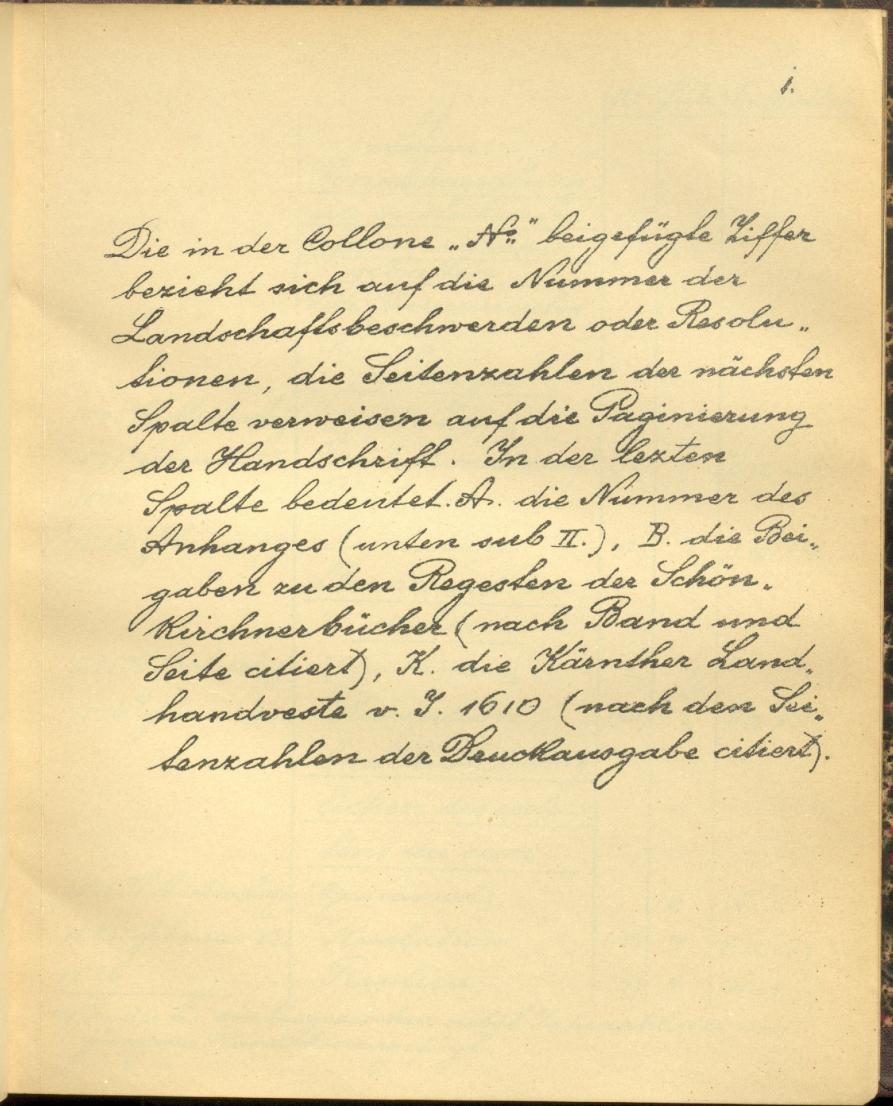 1.
Die in der Collone „No." beigefügte Ziffer
bezieht sich auf die Nummer der
Landschaftsbeschwerden oder Resolu„
tionen, die Seitenzahlen der nächsten
Spalte verweisen auf die Paginierung
der Handschrift. In der lezten
Spalte bedeutet. A. die Nummer des
Anhanges (unten sub II.), B. die Bei„
gaben zu den Regesten der Schön„
kirchnerbücher (nach Band und
Seite citiert), K. die Kärnther Land„
handveste v. J. 1610 (nach den Sei„
tenzahlen der Druckausgabe citiert).